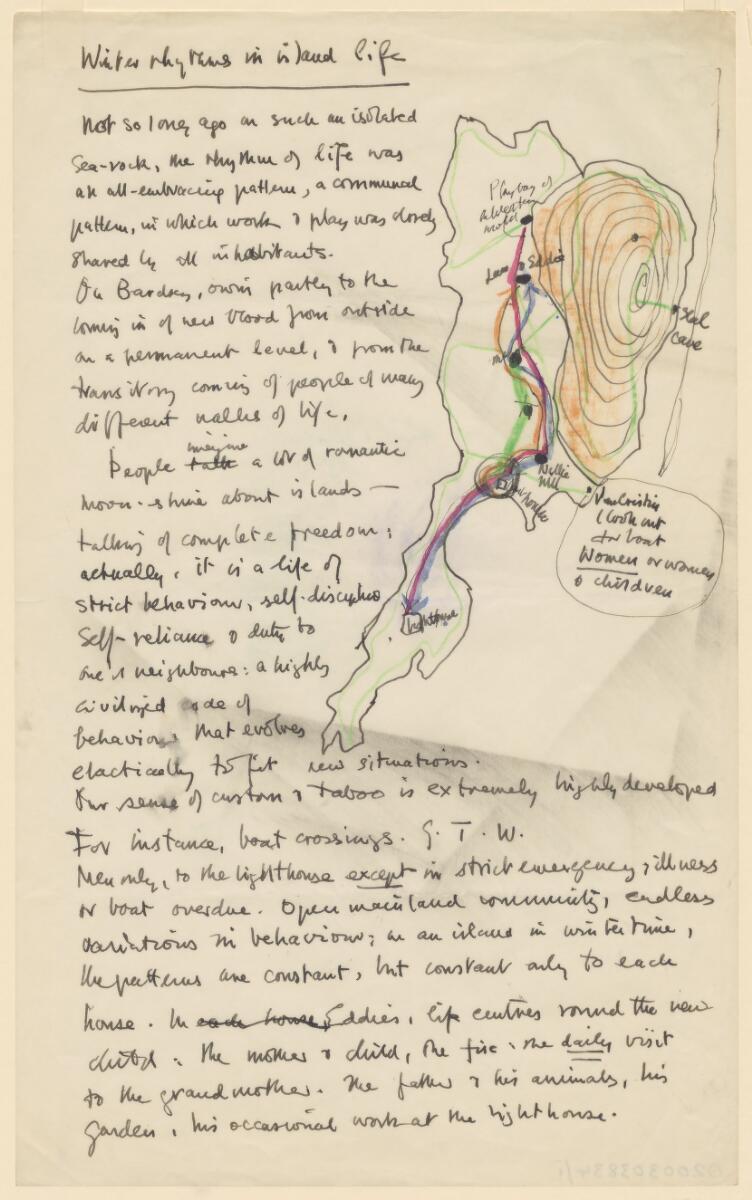 Winter rhythms in island life
Not so long ago on such an isolated
sea-rock, the rhythm of life was
an all-embracing pattern, a communal
pattern, in which work & play was closely
shared by all inhabitants.
On Bardsey, owin partly to the
coming in of new blood from outside
on a permanent level, & from the
transitory coming of people of many
different walks of life.
People talk imagine a lot of romantic
moon-shine about islands —
talking of complete freedom:
actually, it is a life of
strict behaviour, self-discipline
self-reliance & duty to
one's neighbours: a highly
civilized code of
behaviour that evolves
elastically to fit new situations.
Our sense of custom & taboo is extremely highly developed
For instance, boat crossings. G. T. W.
Men only, to the lighthouse except in strict emergency, illness
or boat overdue. Open mainland community, endless
variations in behaviour; on an island in winter time,
the patterns are constant, but constant only to each
house. In each house, Eddies, life centres round the new
child: the mother & child, the fire: the daily visit
to the grandmother. The father & his animals, his
garden, his occasional work at the lighthouse.
Play bay of
world
& Eddie
me
T
Nellie
Will
Seal
cave
lookout
for boat
Women or women
& children
lighthouse